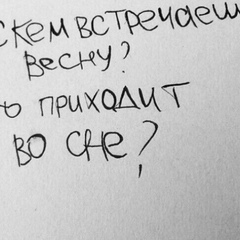 С КЕМ ВСТРЕЧАЕШ
ВЕСНУ?
О ПРИХОДИТ
ВО СНЕ?